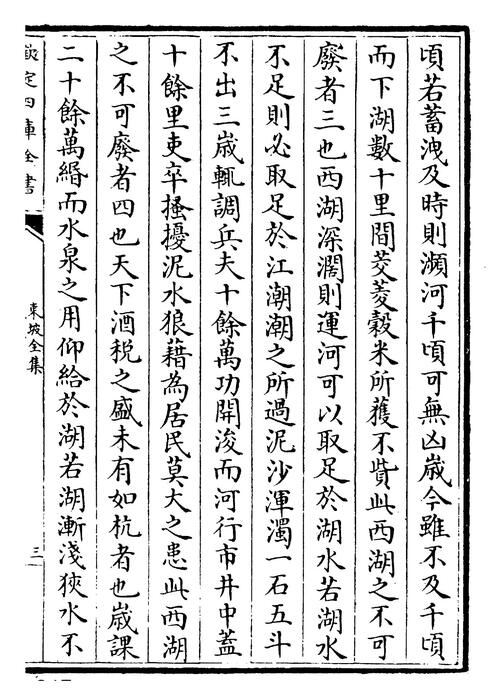 頃若蓄洩及時則瀕河千頃可無凶嵗今雖不及千頃
而下湖數十里間茭菱穀米所獲不貲此西湖之不可
廢者三也西湖深濶則運河可以取足於湖水若湖水
不足則必取足於江潮潮之所過泥沙渾濁一石五斗
不出三嵗輒調兵夫十餘萬功開浚而河行市井中蓋
十餘里吏卒搔擾泥水狼藉為居民莫大之患此西湖
之不可廢者四也天下酒税之盛未有如杭者也嵗課
二十餘萬緡而水泉之用仰給於湖若湖漸淺狹水不
欽定四庫全書
東坡全集
三